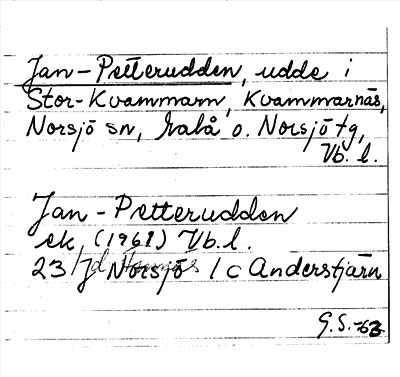 Jan-Petterudden, udde i
Stor-Kvammarn, Kvammarnäs,
Norsjö sn, Malå o. Norsjö tg,
Vb. l.
Jan-Petterudden
ek. (1961) Vb. l.
23 J Norsjö / c Anderstjärn
G.S.-63.